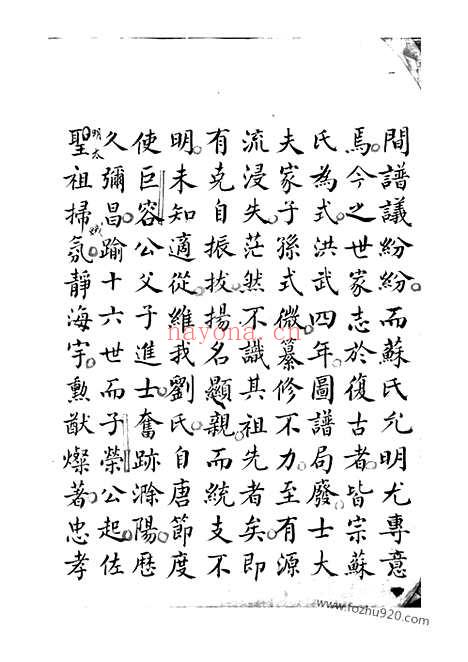 間譜議紛紛而蘇氏允明尤專意
焉今之世家志於復古者皆宗蘇
氏為式洪武四年圖譜局廢士大
夫家子孫式微纂修不力至有源
流浸失茫然不識其祖先者矣即
有克自振拔揚名顯親而統支不
明未知適從維我劉氏自唐節度
使巨容公父子進士奮跡滁陽歷
久彌昌踰十六世而子榮公起佐
明太
聖祖掃氛靜海宇勲猷燦著忠孝
nayona.cn
www.fozhu920.com